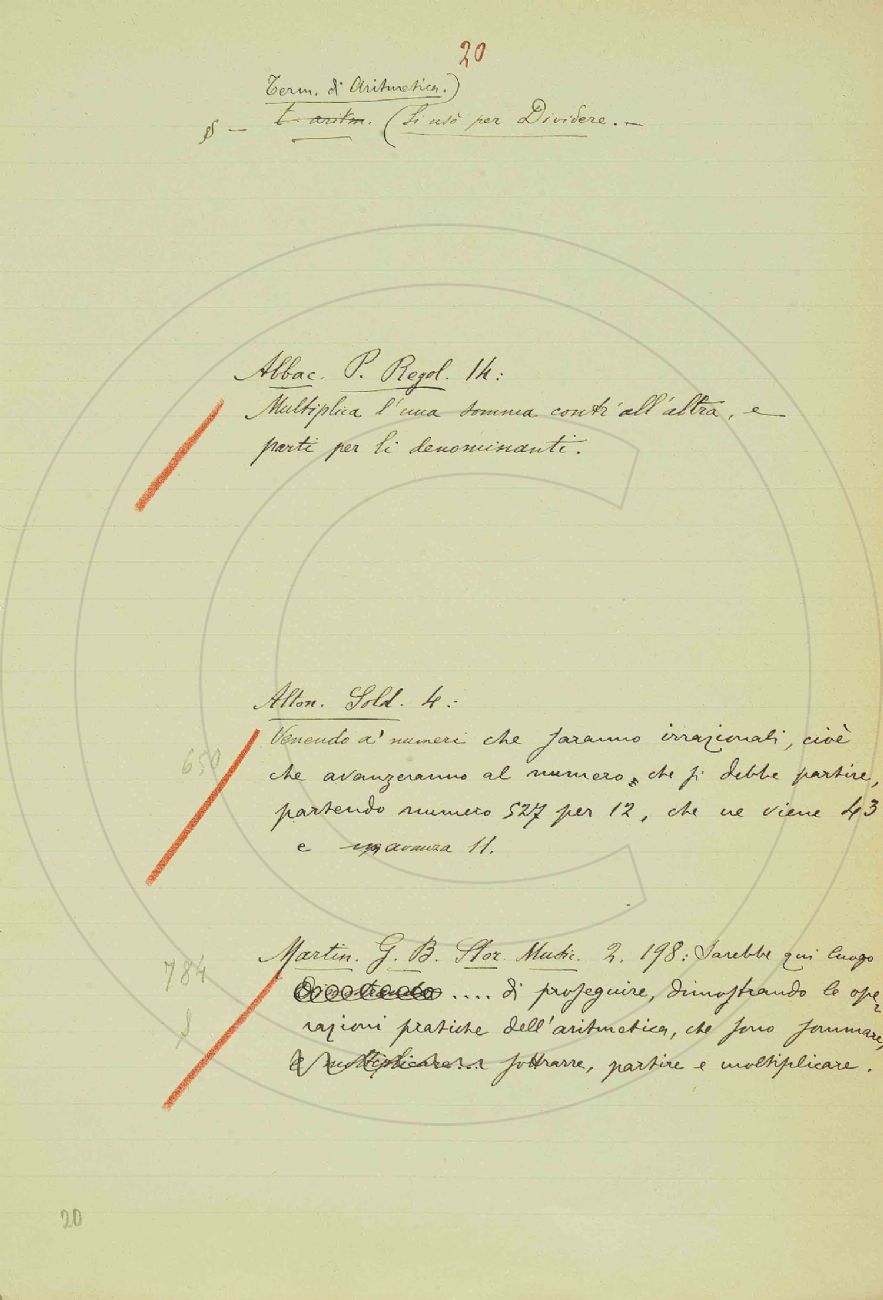 20
Term. d'Aritmetica.)
§ — t. aritm. (Si usò per Dividere. —
Abbac. P. Regol. 14:
Multiplica l'una somma contr'all'altra, e
parti per li denominanti.
Alton. Sold. 4:
Venendo a' numeri che saranno irrazionali, cioè
650
che avanzeranno al numero, che si debbe partire,
partendo numero 527 per 12, che ne viene 43
e avanza 11.
Martin. G. B. Stor. Music. 2. 198: Sarebbe qui luogo
784
.... di proseguire, dimostrando le ope-
razioni pratiche dell'aritmetica, che sono sommare,
e moltiplicare... sottrarre, partire e moltiplicare.
20